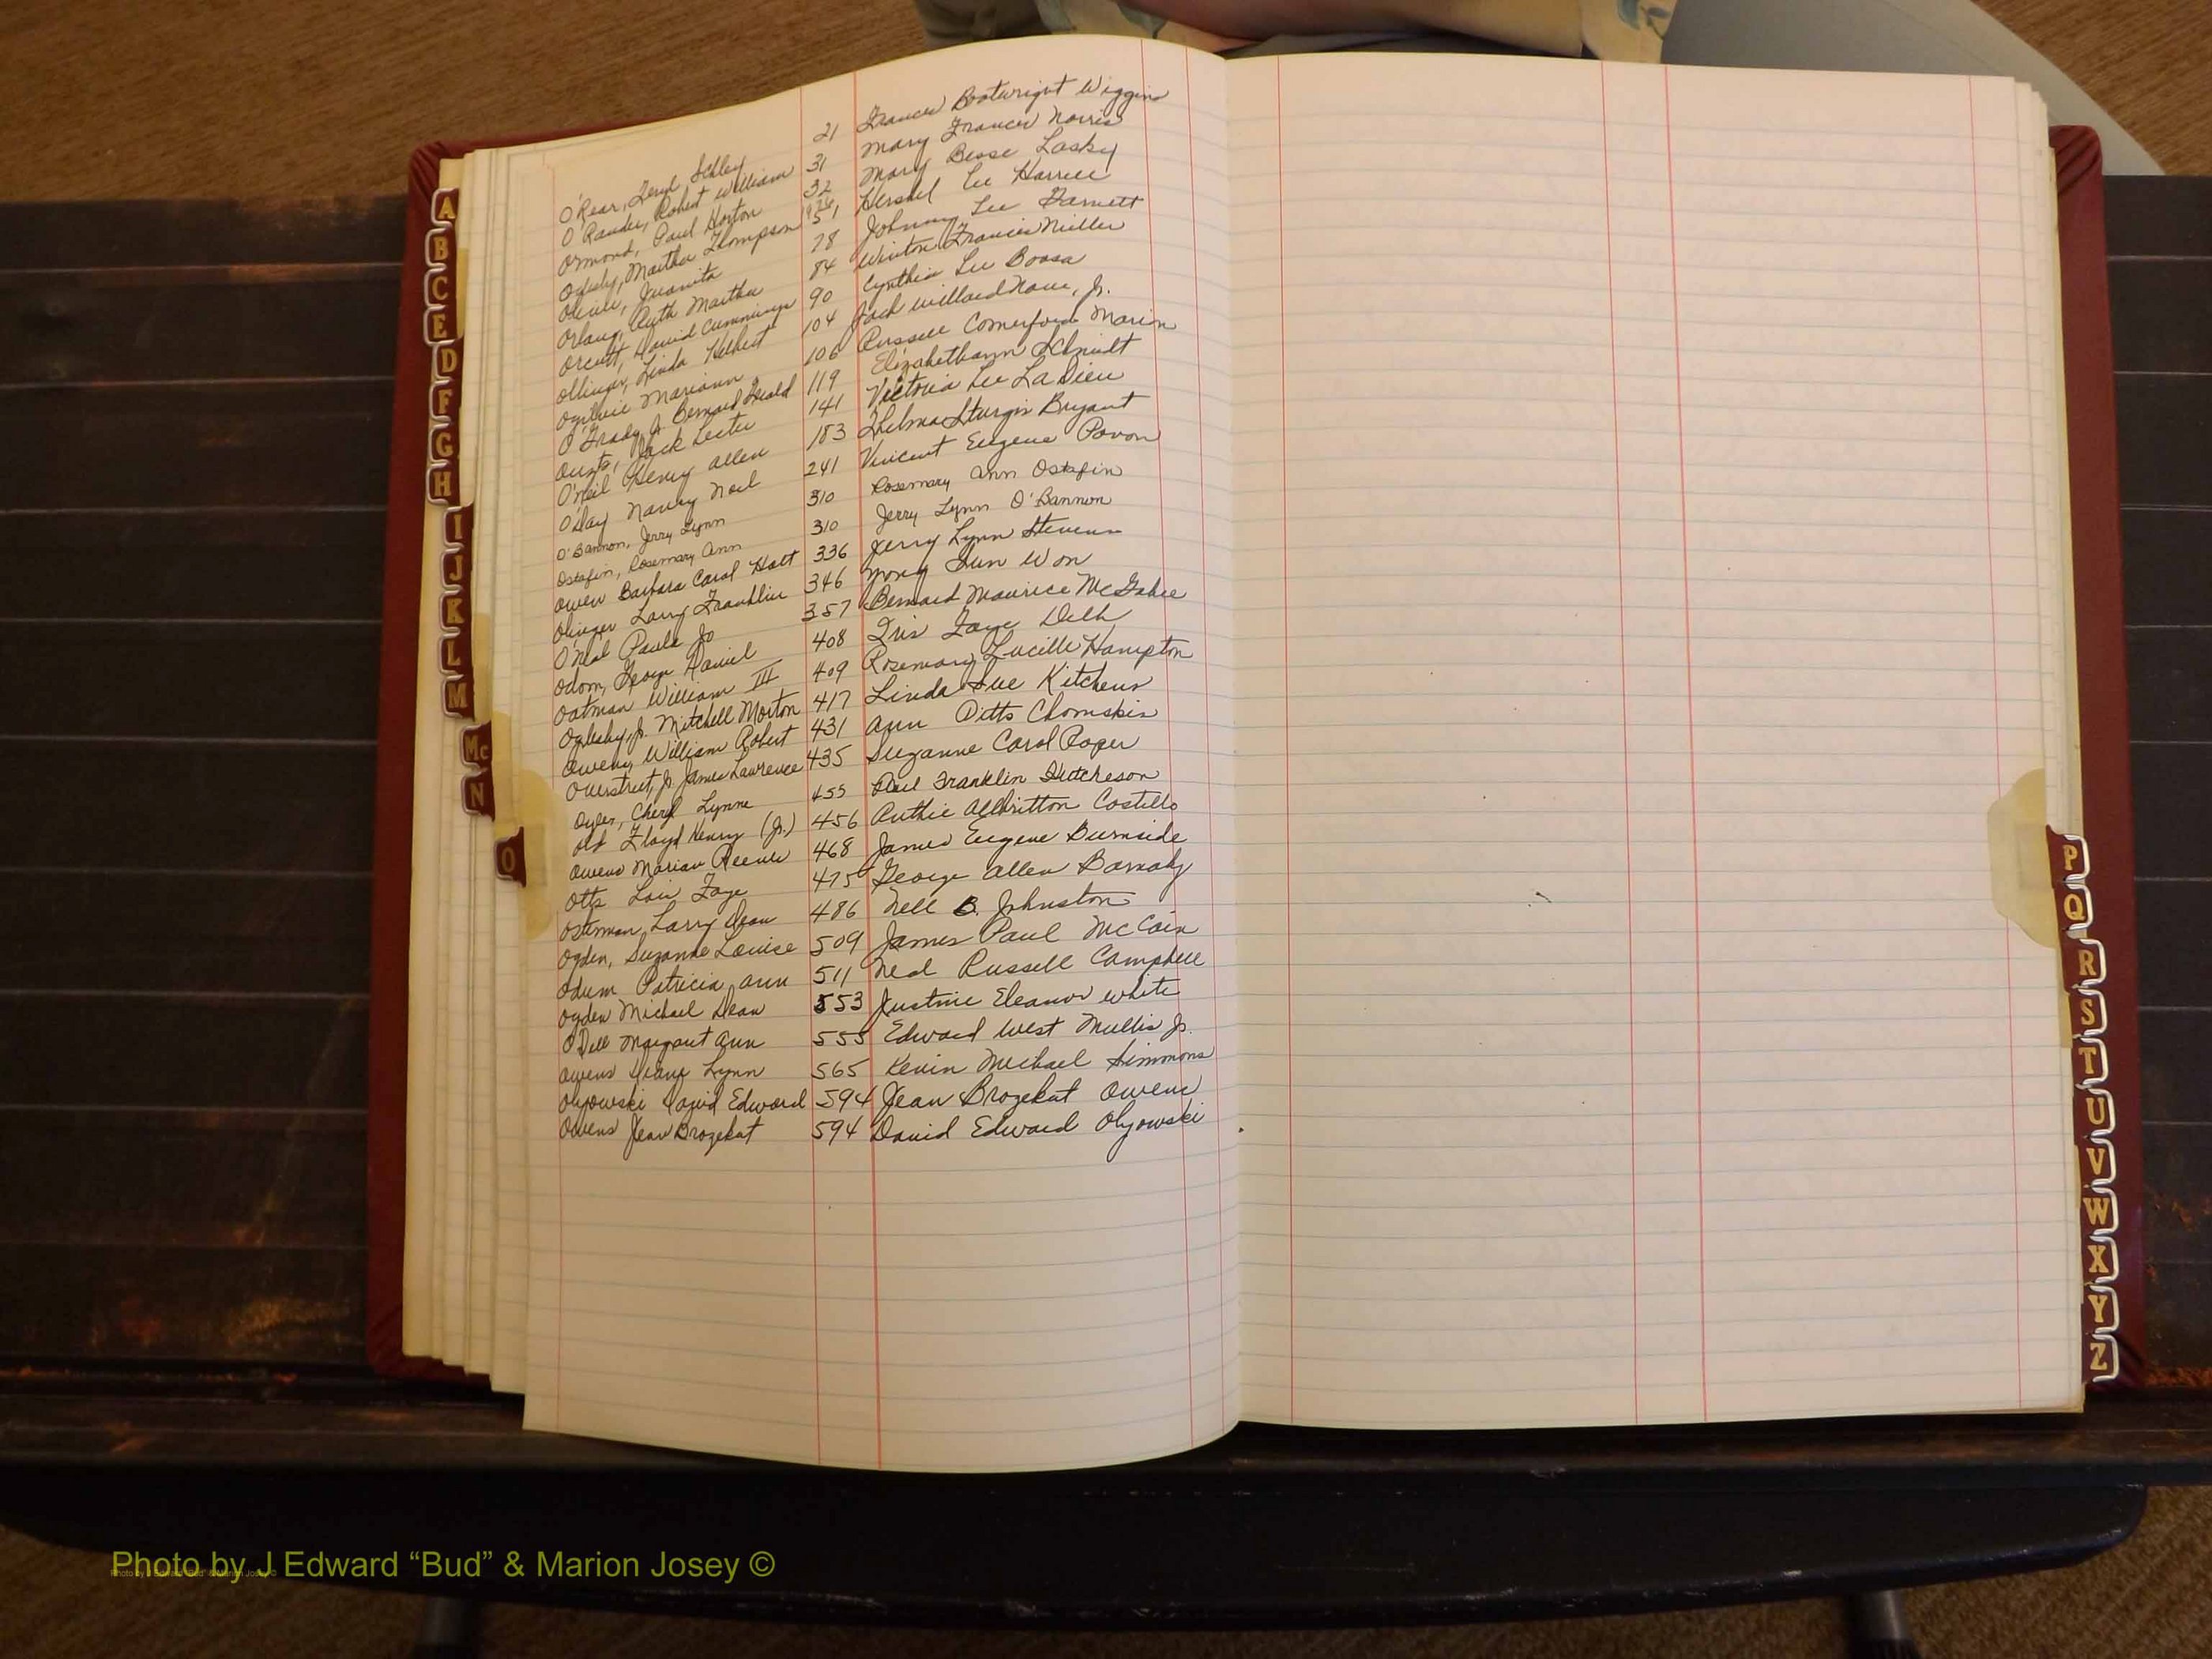 A
B
C
E
D
F
G
H
I
J
K
L
M
Mc
N
O
O'Rear, Schley 21 Frances Boatwright Wiggins
O'Rander, Robert William 31 Mary Frances Norris
Ormond, Paul Horton 32 Mary Besse Lasky
Martha Thompson 51 Hershel Lee Harrell
Juanita 78 Johnny Lee Barnett
Ruth Martha 84 Winton Francis Miller
Orcutt, David Cummings 90 Cynthia Lee
Linda 104 Jack Willard Jr.
Ogilvie Mariann 106 Russell Comerford Marion
O'Grady, Jr. Bernard Gerald 119 Elizabethann Schmidt
Jack Lester 141 Victoria Lee La Dieu
O'Neil Henry Allen 183 Thelma Sturgis Bryant
O'Day Nancy Noel 241 Vincent Eugene Pavon
O'Bannon, Jerry Lynn 310 Rosemary Ann Ostafin
Ostafin, Rosemary Ann 310 Jerry Lynn O'Bannon
Owen Barbara Carol Hatt 336 Jerry Lynn Stevens
Olinger Larry Franklin 346 Yong Sun Won
O'Neal Paula Jo 357 Bernard Maurice McGahee
Odom, George Daniel 408 Iris Faye Delk
Oatman William III 409 Rosemary Lucille Hampton
Oglesby, Jr. Mitchell Morton 417 Linda Sue Kitchens
Owens William Robert 431 Ann Pitts Chomskis
Overstreet, Jr. James Lawrence 435 Suzanne Carol Roper
Oyler, Cheryl Lynne 455 Paul Franklin Hutcheson
Old Floyd Henry (Jr.) 456 Ruthie Allbritton Costillo
Owens Marian Reeves 468 James Eugene Burnside
Otts Lois Faye 475 George Allen Barnaby
Osterman, Larry Dean 486 Nell B. Johnston
Ogden, Suzanne Louise 509 James Paul McCain
Odum Patricia Ann 511 Neal Russell Campbell
Ogden Michael Dean 553 Justine Eleanor White
O'Dell Margaret Ann 555 Edward West Mullis Jr.
Owens Diane Lynn 565 Kevin Michael Simmons
Olyowski David Edward 594 Jean Brozekat Owens
Owens Jean Brozekat 594 David Edward Olyowski
P
Q
R
S
T
U
V
W
X
Y
Z
Photo by J Edward “Bud” & Marion Josey ©
Photo by J Edward “Bud” & Marion Josey ©